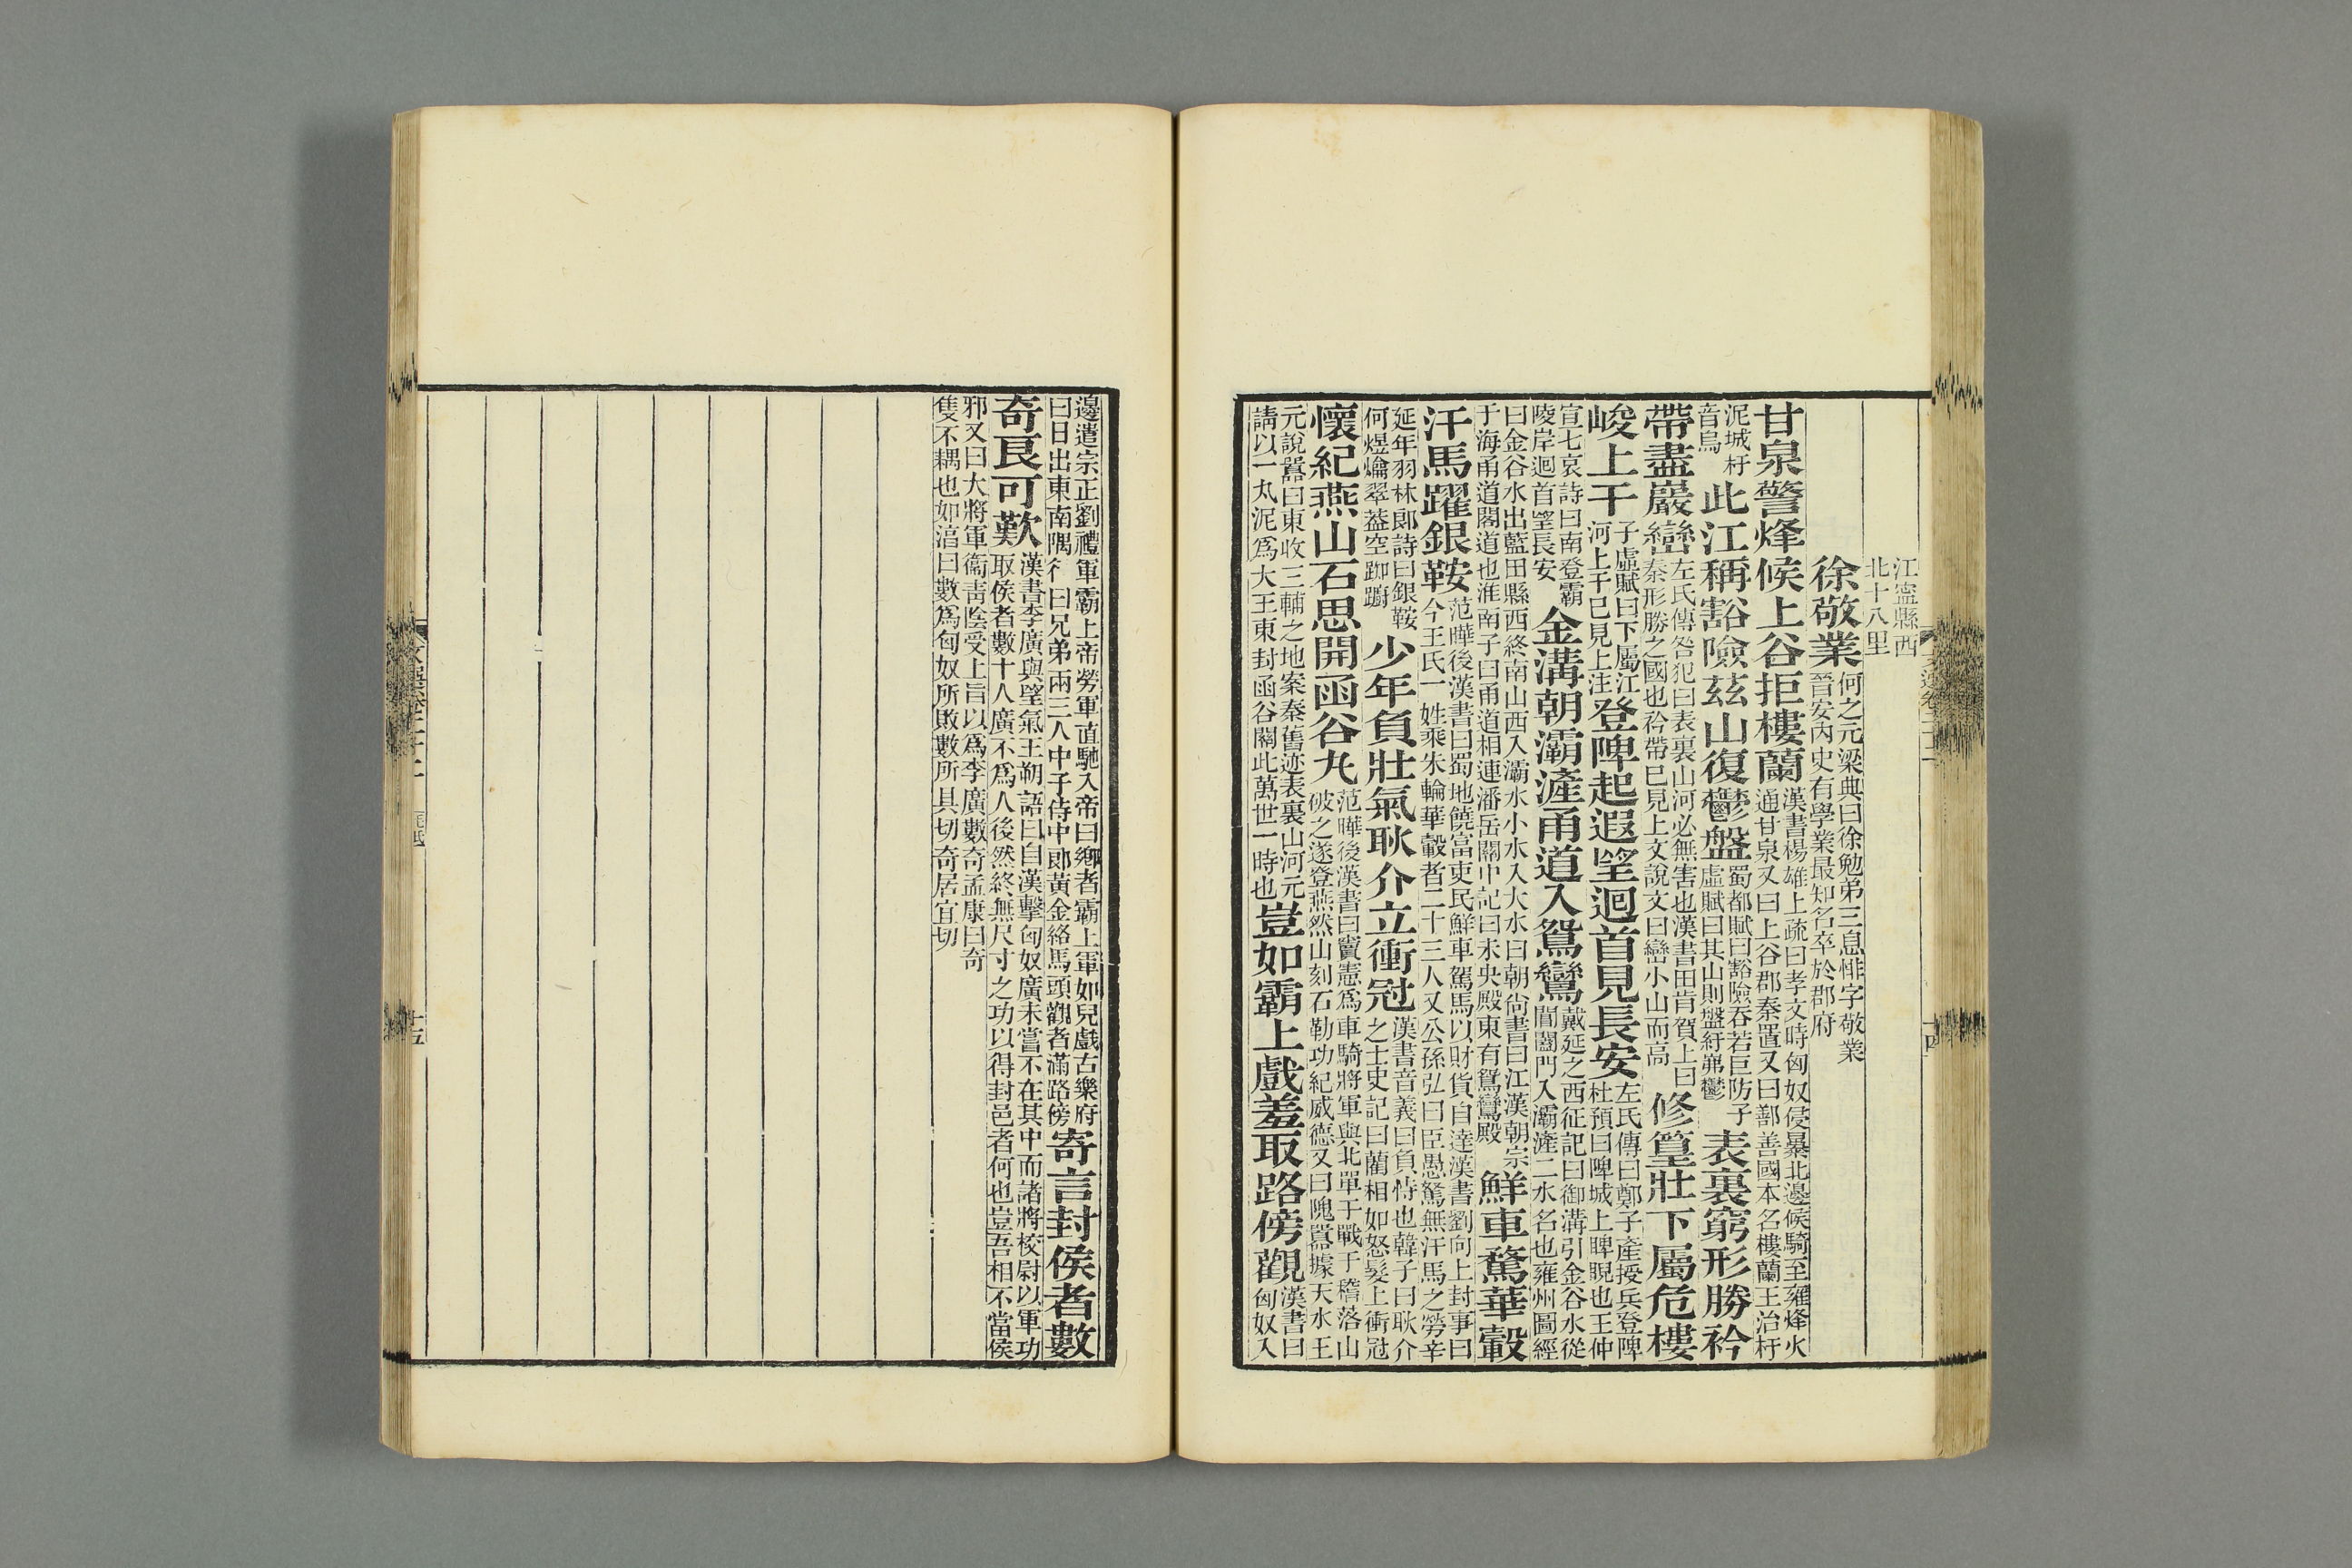 江寧縣西北十八里
徐敬業何之元梁典曰徐勉弟三息悱字敬業晉安內史有學業最知名卒於郡府
甘泉警烽候上谷拒樓蘭漢書楊雄上疏曰孝文時匈奴侵暴北邊候騎至雍烽火通甘泉又曰上谷郡秦置又曰鄯善國本名樓蘭王治扜
泥城扜音烏此江稱豁險茲山復鬱盤蜀都賦曰豁險吞若巨防子虛賦曰其山則盤紆岪鬱表裏窮形勝衿
帶盡巖巒左氏傳咎犯曰表裏山河必無害也漢書田肯賀上曰秦形勝之國也衿帶已見上文說文曰巒小山而高修篁壯下屬危樓
峻上干子虛賦曰下屬江河上干已見上注登陴起遐望迴首見長安左氏傳曰鄭子產授兵登陴杜預曰陴城上睥睨也王仲
宣七哀詩曰南登霸陵岸迴首望長安金溝朝灞滻甬道入鴛鸞戴延之西征記曰御溝引金谷水從閶闔門入灞滻二水名也雍州圖經
曰金谷水出藍田縣西終南山西入灞水小水入大水曰朝尙書曰江漢朝宗于海甬道閣道也淮南子曰甬道相連潘岳關中記曰未央殿東有鴛鸞殿鮮車騖華轂
汗馬躍銀鞍范曄後漢書曰蜀地饒富吏民鮮車駕馬以財貨自達漢書劉向上封事曰今王氏一姓乘朱輪華轂者二十三人又公孫弘曰臣愚駑無汗馬之勞辛
延年羽林郞詩曰銀鞍何煜爚翠蓋空踟躕少年負壯氣耿介立衝冠漢書音義曰負恃也韓子曰耿介之士史記曰藺相如怒髮上衝冠
懷紀燕山石思開函谷丸范曄後漢書曰竇憲爲車騎將軍與北單于戰于稽落山破之遂登燕然山刻石勒功紀威德又曰隗囂據天水王
元說囂曰東收三輔之地案秦舊迹表裏山河元請以一丸泥爲大王東封函谷關此萬世一時也豈如霸上戲羞取路傍觀漢書曰匈奴入
邊遣宗正劉禮軍霸上帝勞軍直馳入帝曰鄉者霸上軍如兒戲古樂府曰日出東南隅行曰兄弟兩三人中子侍中郞黃金絡馬頭觀者滿路傍寄言封侯者數
奇良可歎漢書李廣與望氣王朔語曰自漢擊匈奴廣未嘗不在其中而諸將校尉以軍功取侯者數十人廣不爲人後然終無尺寸之功以得封邑者何也豈吾相不當侯
邪又曰大將軍衞靑陰受上旨以爲李廣數奇孟康曰奇隻不耦也如淳曰數爲匈奴所敗數所具切奇居宜切
十五